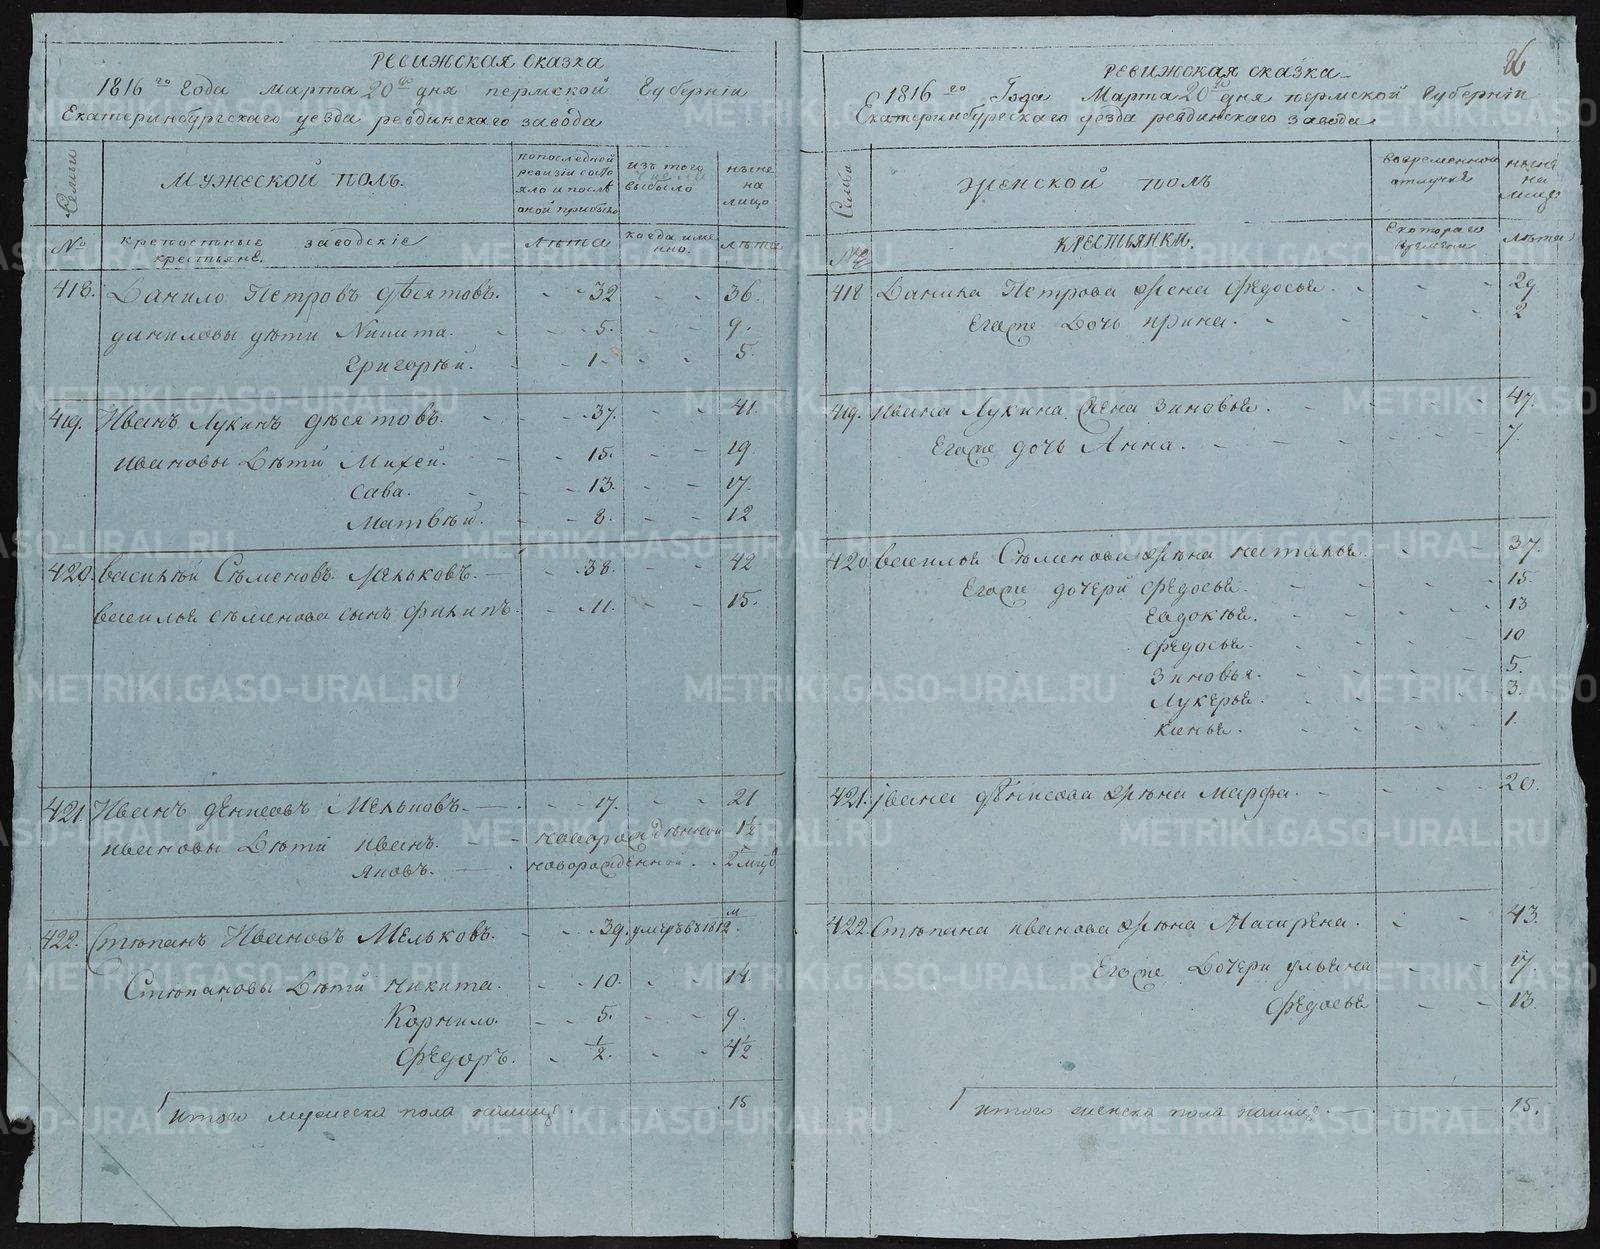 Ревижская сказка
1816 го года марта 20 го дня пермской губерніи
Екатеринбургскаго уезда ревдинскаго завода
Семьи
Мужеской полъ.
попоследней ревизіи состояло и послѣ оной прибыло
изъ того числа выбыло
ныне на лицо
№
крепостные заводскіе крестьяне.
лѣта
когда именно.
лѣта
418. Данило Петровъ дѣсятовъ. 32 36.
даниловы дѣти Никита. 5. 9.
Григорѣй. 1. 5.
419. Иванъ Лукинъ дѣсятовъ. 37. 41.
ивановы дѣти Михей. 15. 19
Сава. 13. 17.
Матвѣй. 8. 12
420. василѣй Сѣменовъ Мельковъ. 38. 42
василья сѣменова сынъ филипъ. 11. 15.
421. Иванъ денисовъ Мельковъ. 17. 21
ивановы дѣти иванъ. новорожденной 1½
яковъ. новорожденной. 2 мцъ
422. Стѣпанъ Ивановъ Мельковъ. 39. умеръ въ 1812 м.
Стѣпановы дѣти никита. 10. 14.
Корнило. 5. 9.
Федоръ. ½. 4½
итого мужеска пола налицо 15
26
Ревижская сказка
1816 го Года Марта 20 го дня пермской Губерніи
Екатеринбургскаго уезда ревдинскаго завода
Семьи
женской полъ
вовременной отлучке
ныне на лицо
№
крестьянки.
скотораго времени
лѣта
418 Данила Петрова жена Федосья. 29
Егоже дочь ирина. 2
419. ивана Лукина жена Зиновья. 47.
Егоже дочь Анна. 7.
420 василья Сѣменова жѣна наталья. 37.
Егоже дочери Федосья. 15.
Евдокья. 13
Федосья. 10
Зиновья. 5.
Лукерья. 3.
1.
421. Ивана дѣнисова жѣна марфа. 20.
422. Стѣпана иванова жѣна Матирена. 43.
Егоже дочери ульяна 17.
Федосья 13.
итого женска пола налицо 15.
METRIKI.GASO-URAL.RU